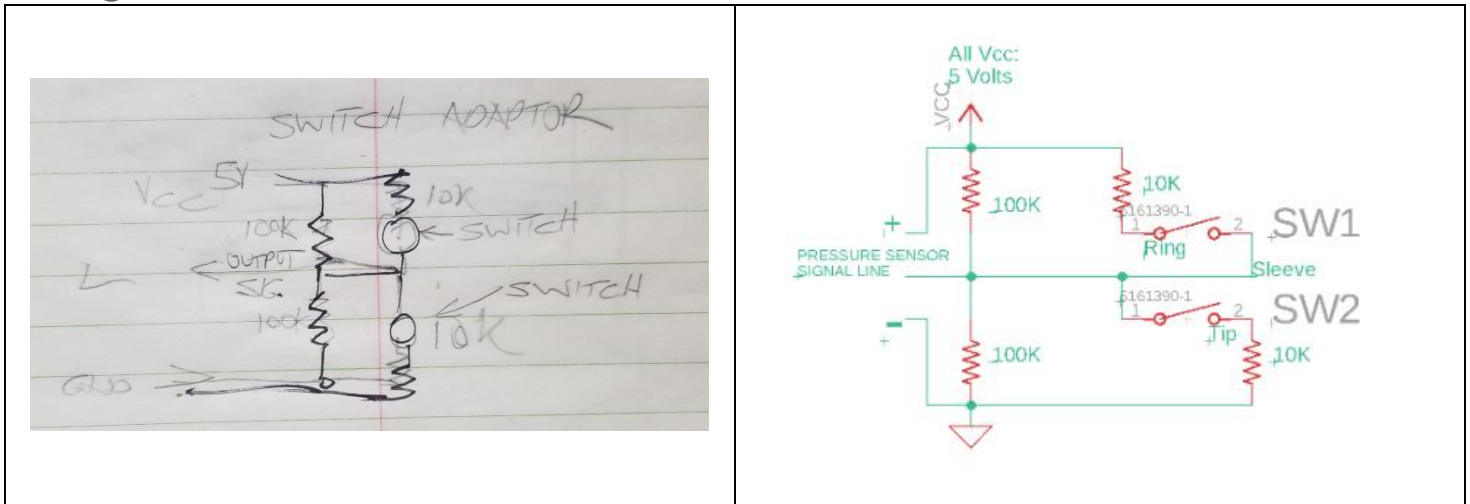 SWITCH ADAPTOR
VCC 5V
10K
100K
SWITCH
OUTPUT
SIG.
SWITCH
100K
10K
GND
All Vcc:
5 Volts
VCC
10K
100K
5161390-1
SW1
+
1
2
Ring
PRESSURE SENSOR
SIGNAL LINE
Sleeve
5161390-1
SW2
1
2
-
Tip
100K
10K